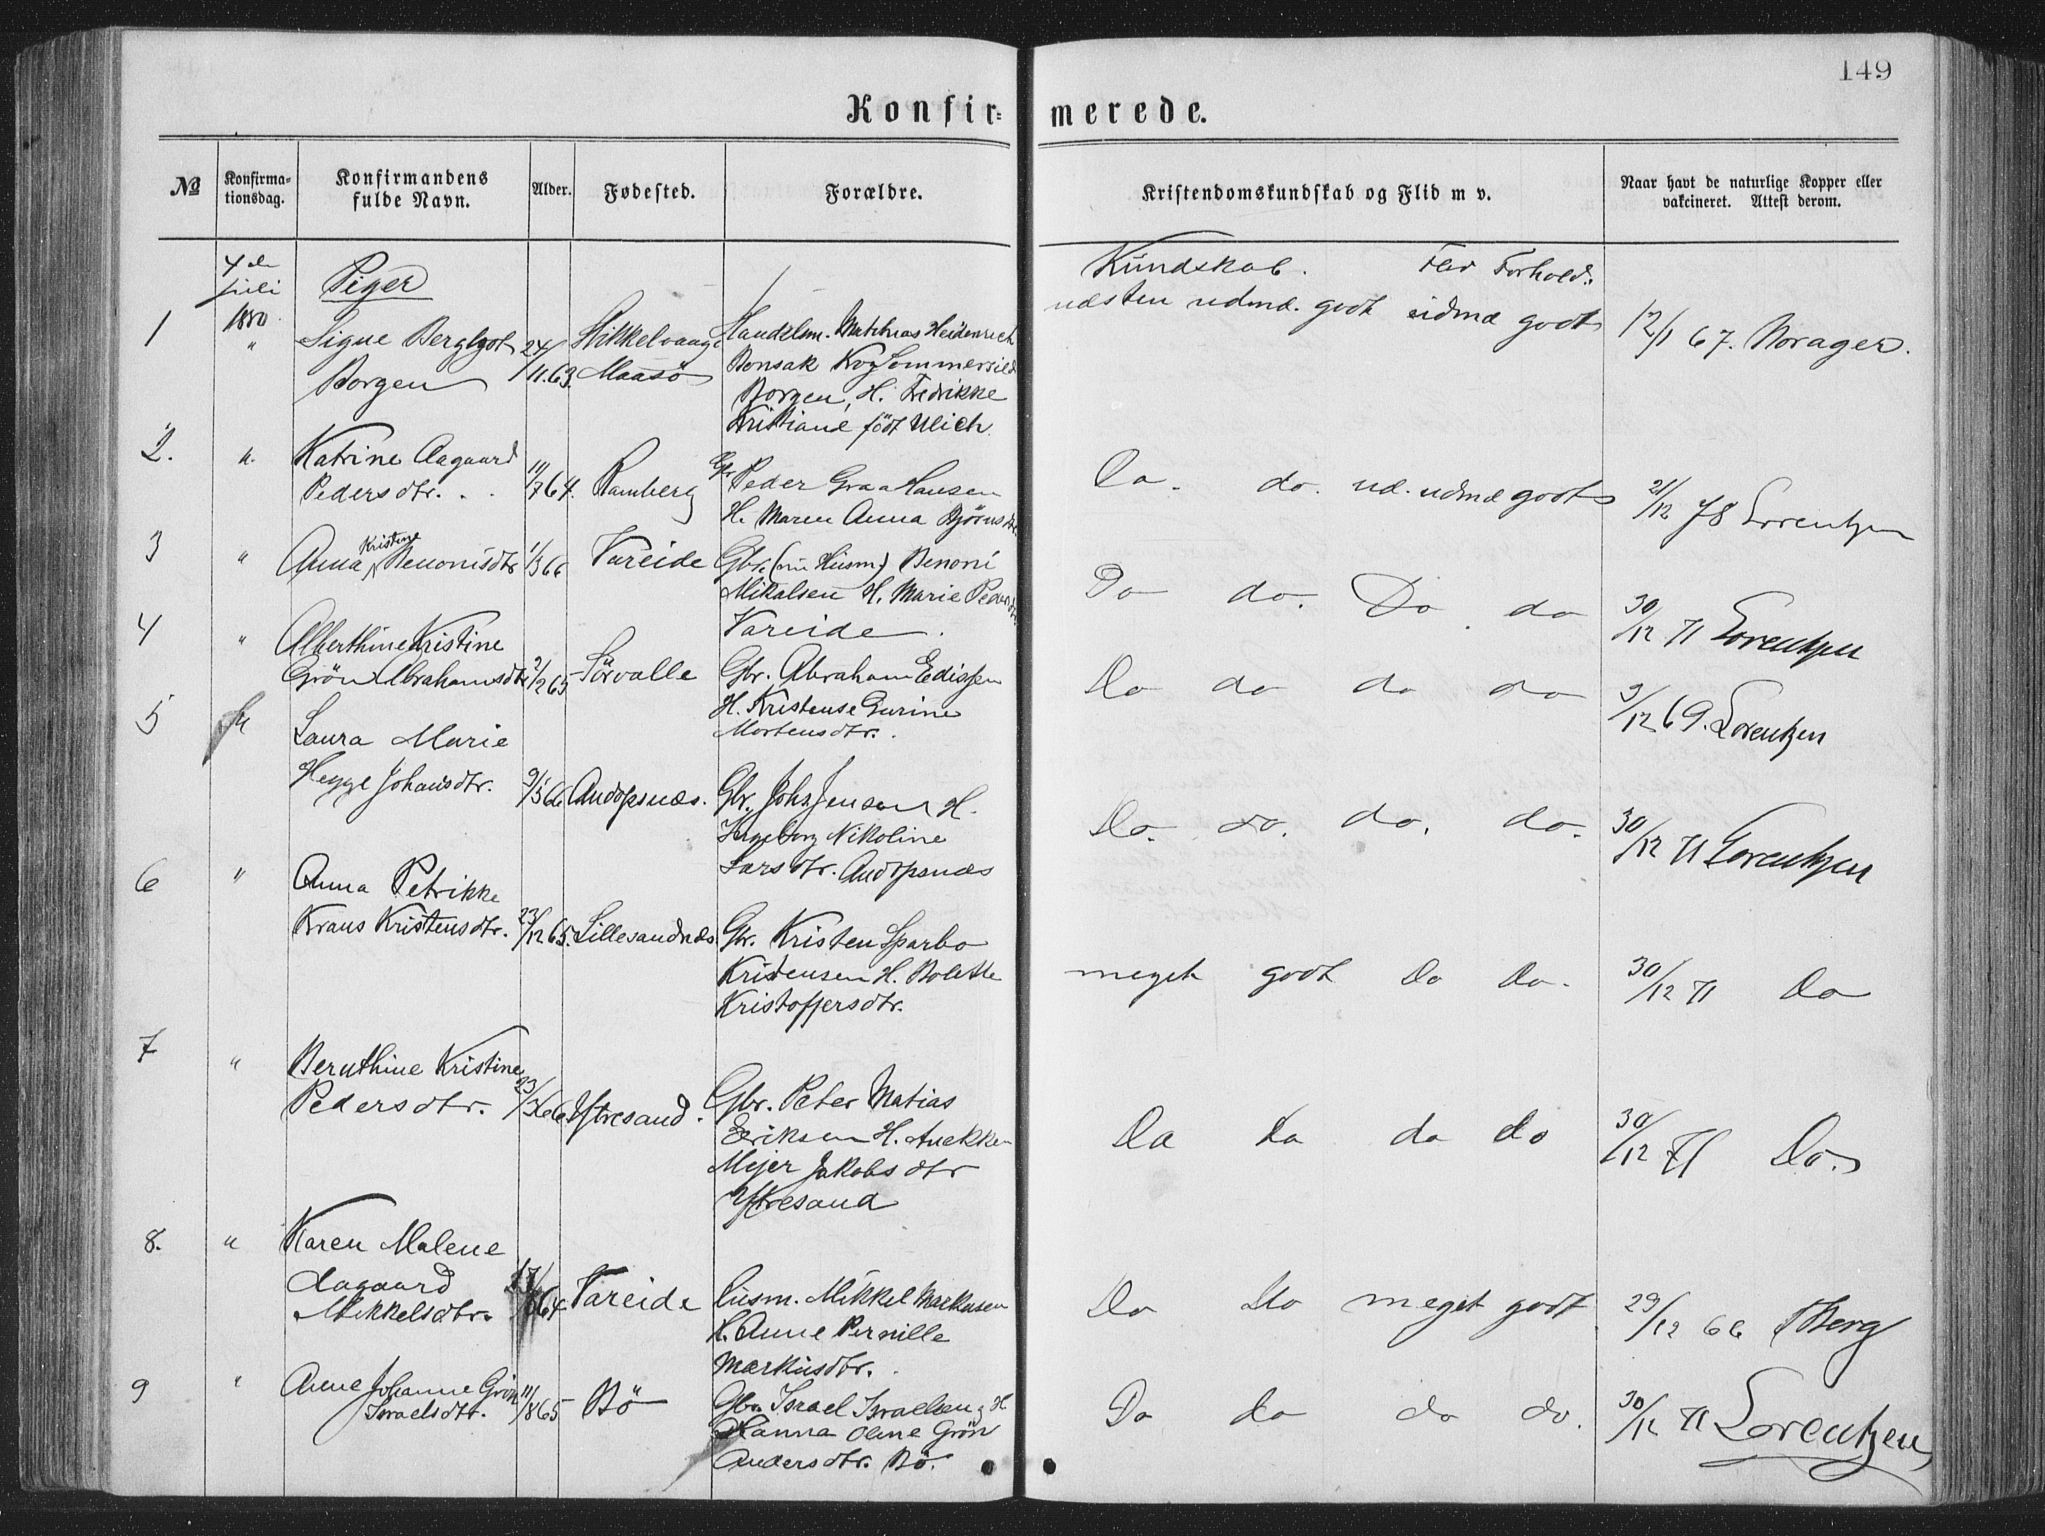 149
Konfir=
merede.
№
Konfirma-
tionsdag.
Konfirmandens
fulde Navn.
Alder.
Fødested.
Forældre.
Kristendomskundskab og Flid m v.
Naar havt de naturlige Kopper eller
vakcineret. Attest derom.
4de
juli
1880
Piger
Kundskab. Flid Forhold.
1 " Signe Bergljot 24/11.63. Stikkelvaag Handelsm. Mathias Heidenreich næsten udmæ. godt udmæ godt 12/1 67. Norager.
Borgen Maasö Bonsak Kog Sommersild
Borgen, H. Fredrikke
Kristiane födt Ulich
2. " Katrine Aagaard 11/7 64. Ramberg Gbr. Peder Graa Hansen Do. do. ud. udmæ godt 21/12 78 Lorentzen
Pedersdtr. H. Maren Anna Björnsdtr.
3 " Anna Kristine Benonisdtr 1/3 66 Vareide Gbr. (nu Husm.) Benoni Do do. Do do 30/12 71 Lorentzen
Mikalsen H. Marie Pedersdtr.
Vareide.
4 " Alberthine Kristine
Grön Abrahamsdtr 2/2 65 Sörvalle Gbr. Abraham Edissen Do do do do 9/12 69. Lorentzen
H. Kristense Gurine
Mortensdtr.
5 Laura Marie
Hegge Johansdtr. 9/5 66 Andopsnæs. Gbr. Joh. Jensen H. Do. do. do. do. 30/12 71 Lorentzen
Ingeborg Nikoline
Larsdtr. Andopsnæs
6 " Anna Petrikke
Kraus Kristensdtr. 23/12 65. Lillesandnæs. Gbr. Kristen Sparbo meget godt Do Do. 30/12 71 Do
Kristensen H. Bolette
Kristoffersdtr.
7 " Beruthine Kristine
Pedersdtr. 23/3 66 Ytresand. Gbr. Peter Matias Do do do do 30/12 71 Do.
Eriksen H. Anekken
Mejer Jakobsdtr
Ytresand
8. " Karen Malene
Aagaard
Mikkelsdtr. 64 Vareide Husm. Mikkel Markusen Do Do meget godt 29/12 66 Berg
H. Anne Pernille
Markusdtr.
9 " Anne Johanne Grön 11/8 65 Bö Gbr. Israel Israelsen H Do do do do. 30/12 71 Lorentzen
Israelsdtr. Hanna Oline Grön
Andersdtr. Bö.